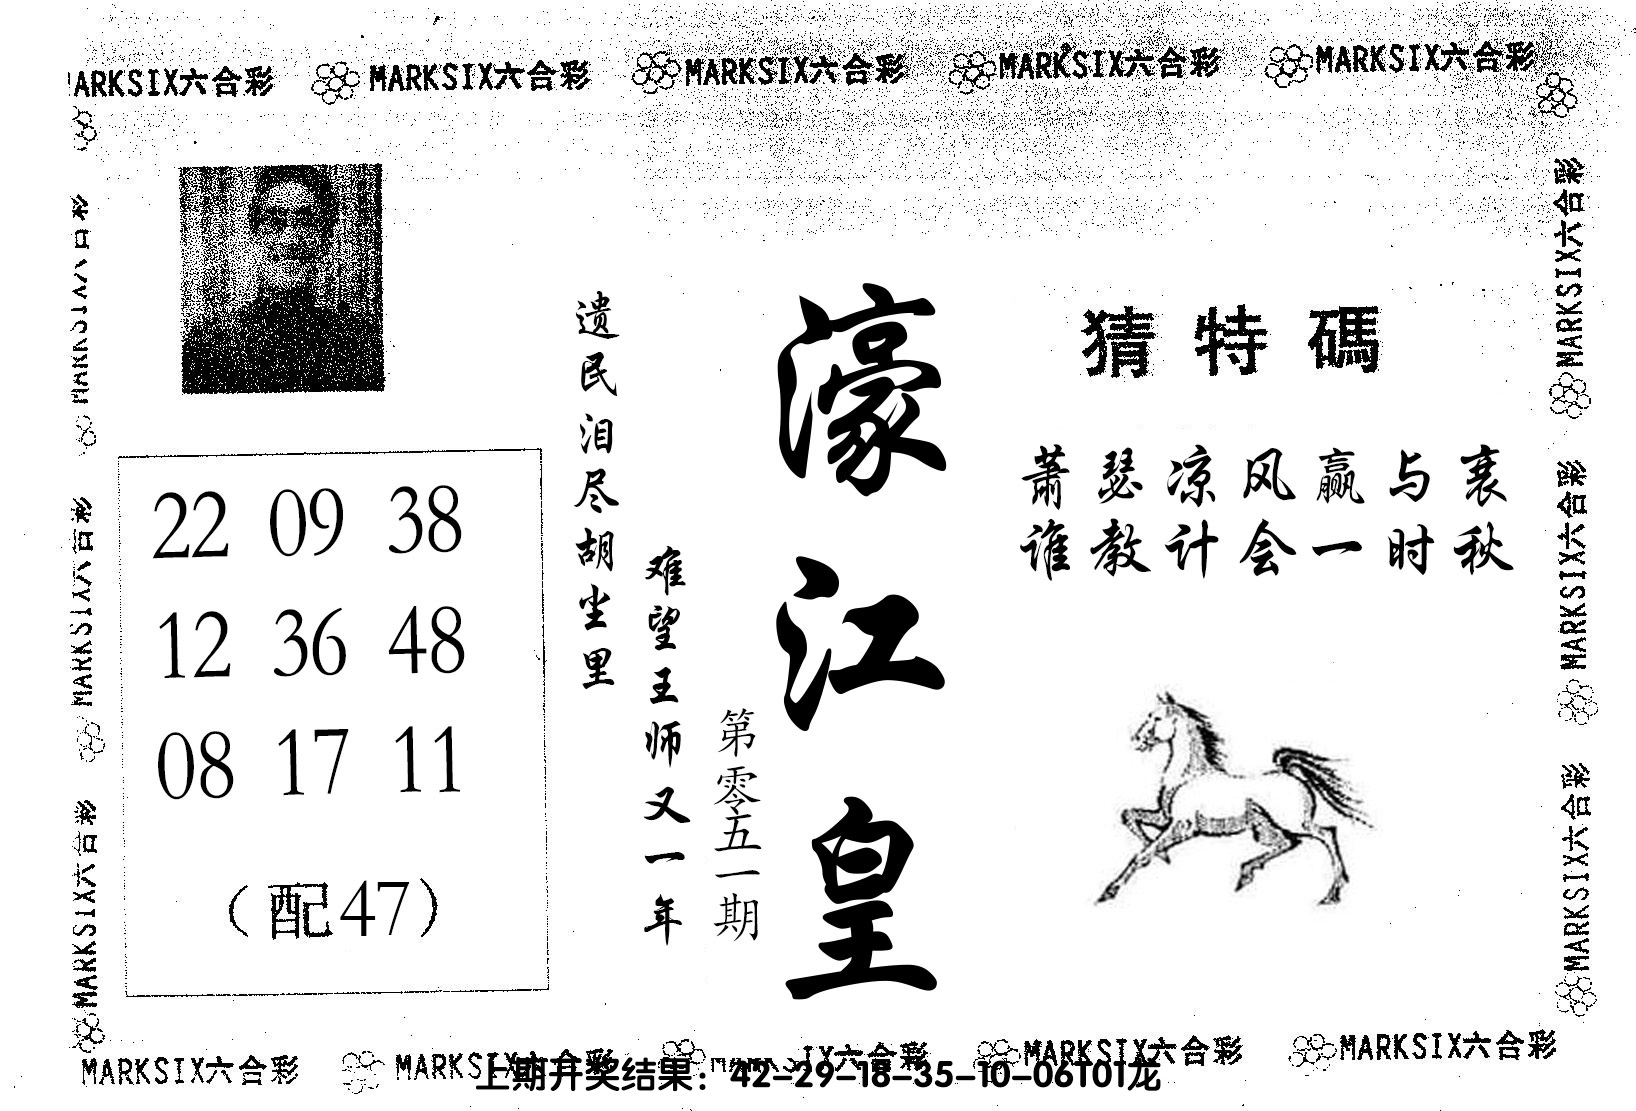 MARKSIX六合彩 MARKSIX六合彩 MARKSIX六合彩 MARKSIX六合彩 MARKSIX六合彩
MARKSIX六合彩
MARKSIX六合彩
MARKSIX六合彩
22 09 38
12 36 48
08 17 11
（配47）
遗民泪尽胡尘里
难望王师又一年
第零五一期
濠江皇
猜特碼
萧瑟凉风赢与衰
谁教计会一时秋
MARKSIX六合彩
MARKSIX六合彩
MARKSIX六合彩
MARKSIX六合彩 MARKSIX六合彩 IX六合彩 MARKSIX六合彩 MARKSIX六合彩
上期开奖结果：42-29-18-35-10-06T01龙